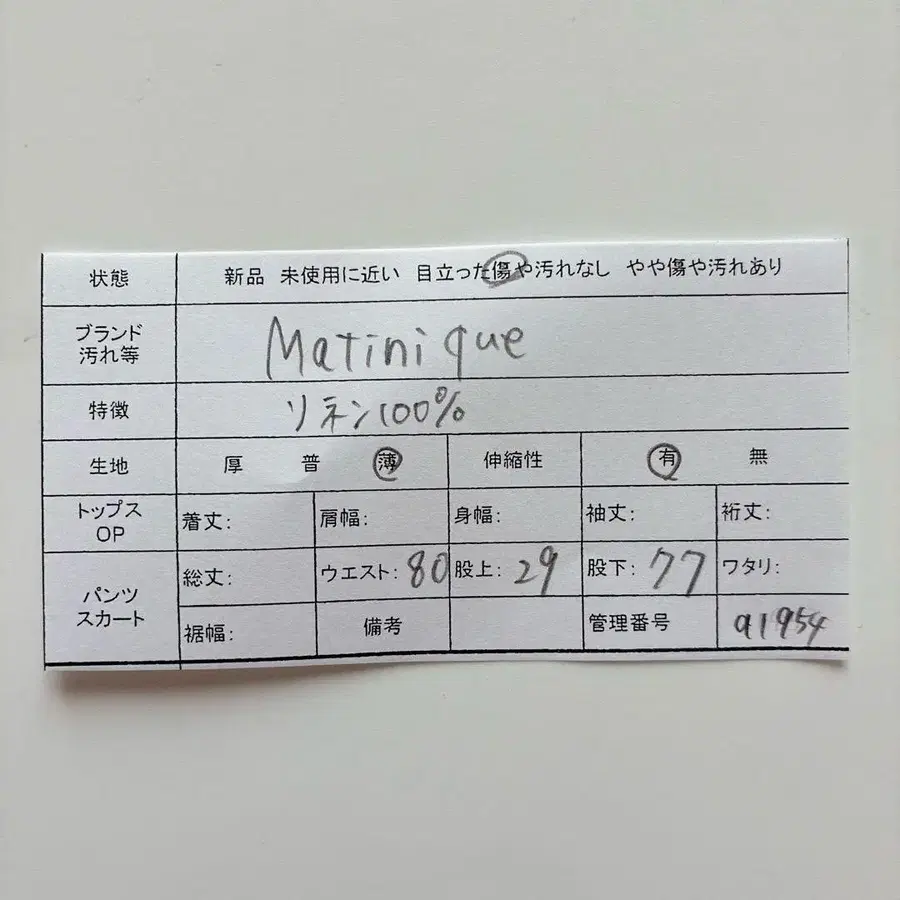 状態 新品 未使用に近い 目立った傷や汚れなし やや傷や汚れあり
ブランド
汚れ等 Matinique
特徴 リネン100%
生地 厚 普 薄 伸縮性 有 無
トップス
OP 着丈: 肩幅: 身幅: 袖丈: 裄丈:
パンツ
スカート 総丈: ウエスト: 80 股上: 29 股下: 77 ワタリ:
裾幅: 備考 管理番号 a1954